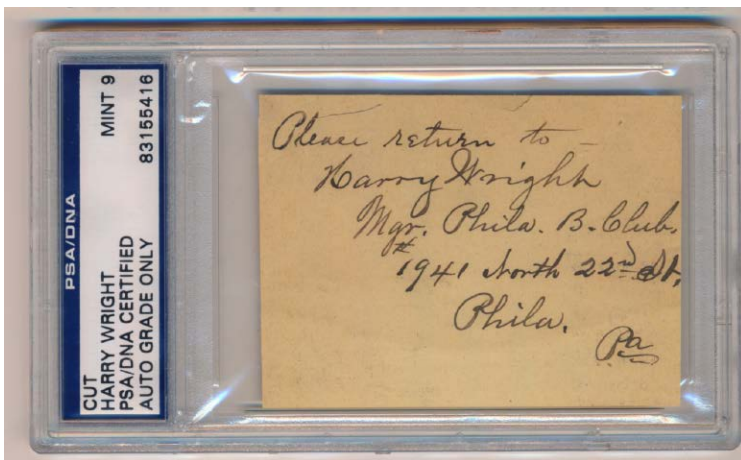 PSA/DNA
CUT
HARRY WRIGHT MINT 9
PSA/DNA CERTIFIED
AUTO GRADE ONLY 83155416
Please return to –
Harry Wright
Mgr. Phila. B. Club.
# 1941 North 22nd St.
Phila.
Pa